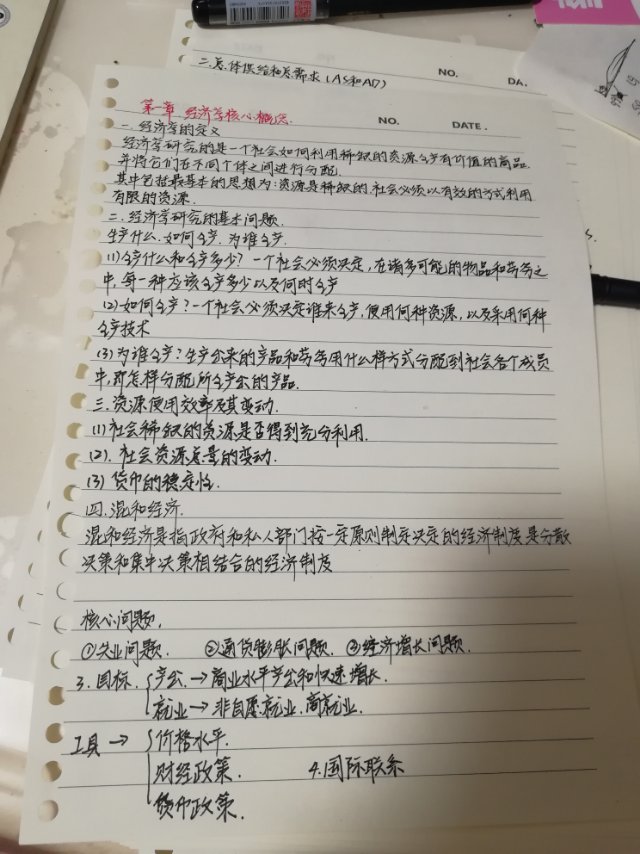 二.总体供给和总需求(AS和AD)
NO.
DA.
第一章 经济学核心概念.
NO.
DATE.
一.经济学的定义
经济学研究的是一个社会如何利用稀缺的资源生产有价值的商品
并将它们在不同个体之间进行分配.
其中包括最基本的思想为:资源是稀缺的.社会必须以有效的方式利用
有限的资源.
二.经济学研究的基本问题.
生产什么.如何生产.为谁生产.
(1)生产什么和生产多少?一个社会必须决定,在诸多可能的物品和劳务之
中,每一种应该生产多少以及何时生产
(2)如何生产?一个社会必须决定谁来生产,使用何种资源,以及采用何种
生产技术
(3)为谁生产?生产出来的产品和劳务用什么样方式分配到社会各个成员
中,即怎样分配所生产出的产品.
三.资源使用效率及其变动.
(1)社会稀缺的资源是否得到充分利用.
(2).社会资源总量的变动.
(3)货币的稳定性.
四.混和经济.
混和经济是指政府和私人部门按一定原则制定决定的经济制度是分散
决策和集中决策相结合的经济制度
核心问题.
①失业问题. ②通货膨胀问题. ③经济增长问题.
3.目标. 产出.→商业水平产出和快速增长.
就业→非自愿就业.高就业.
工具→ 价格水平.
财经政策. 4.国际联系
货币政策.